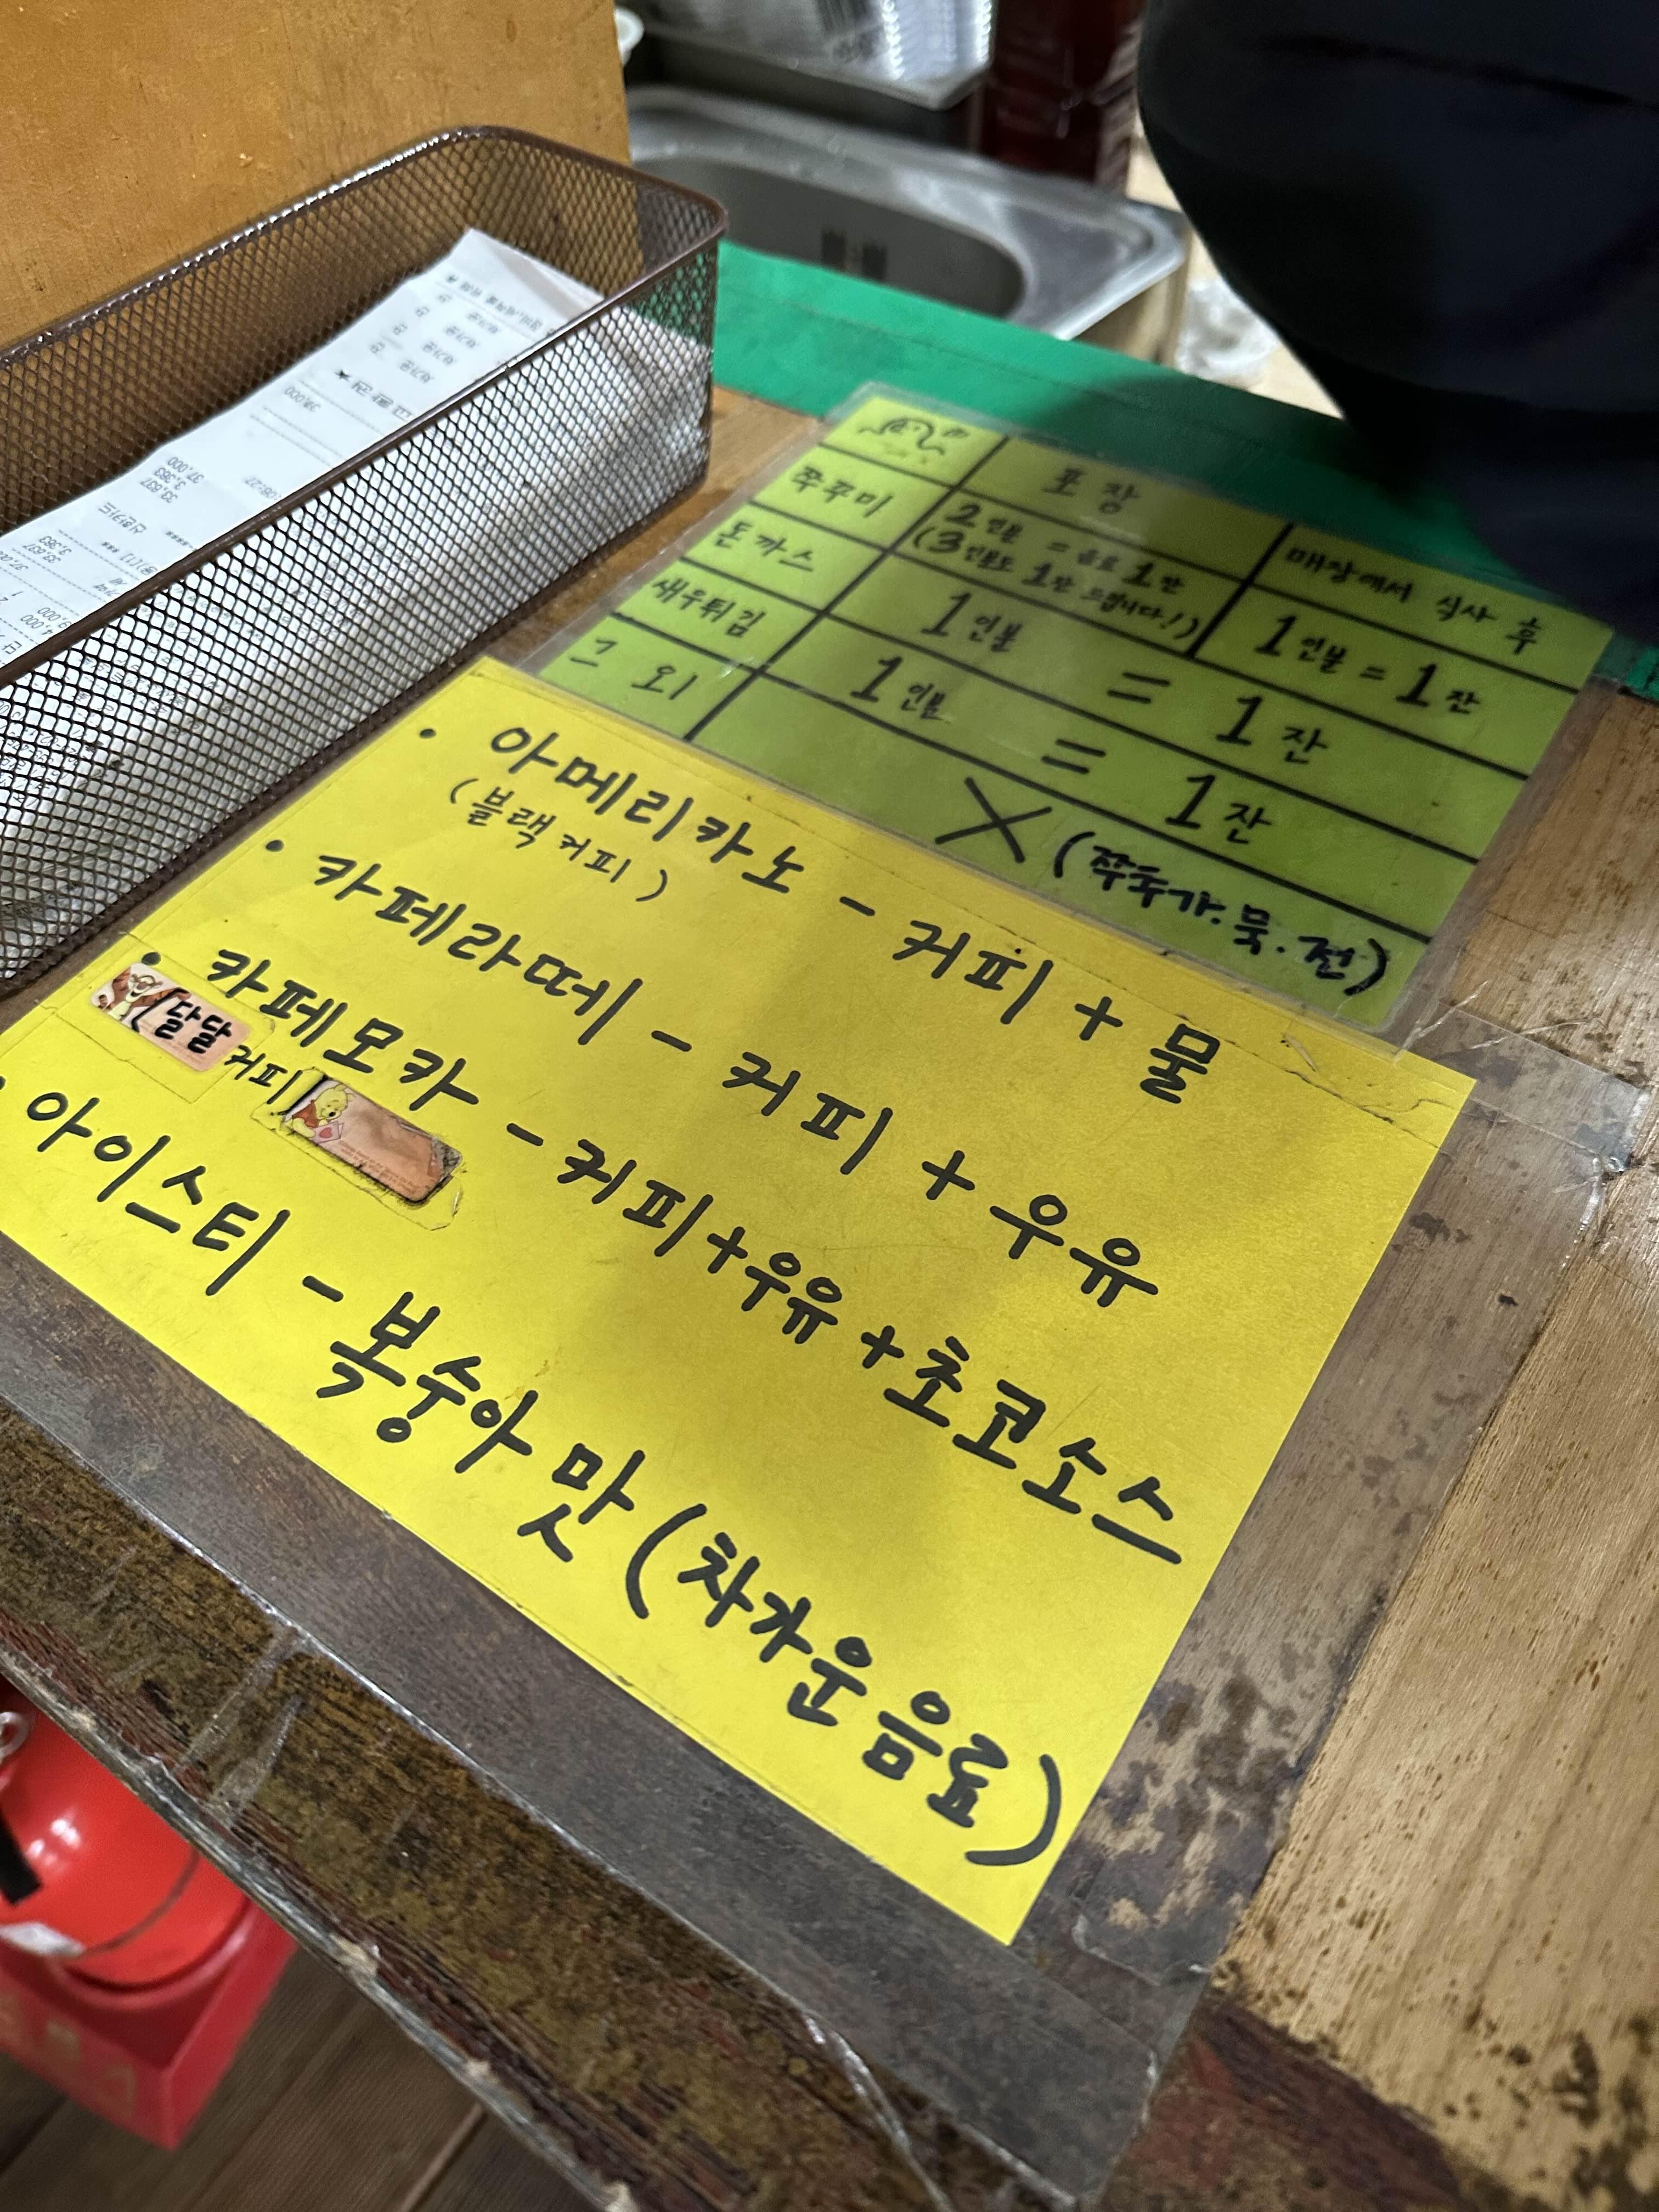 포장
매장에서 식사 후
쭈꾸미
2인분 = 음료 1잔
(3인분도 1잔 드립니다!)
1인분 = 1잔
돈까스
1인분 = 1잔
새우튀김
1인분 = 1잔
그 외
X (쭈추가.묵.전)
• 아메리카노 - 커피 + 물
(블랙커피)
• 카페라떼 - 커피 + 우유
• 카페모카 - 커피+우유+초코소스
(달달커피
• 아이스티 - 복숭아맛 (차가운음료)
신한카드
38,000
33,637
3,363
37,000